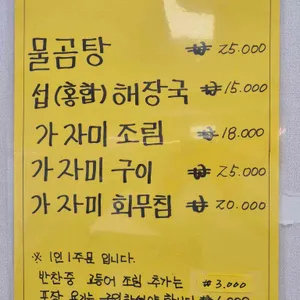 물곰탕 ₩ 25.000
섭(홍합)해장국 ₩ 15.000
가자미 조림 ₩ 18.000
가자미 구이 ₩ 25.000
가자미 회무침 ₩ 20.000
※ 1인 1주문 입니다.
반찬중 고등어 조림 추가는 ₩ 3.000
포장 용기는